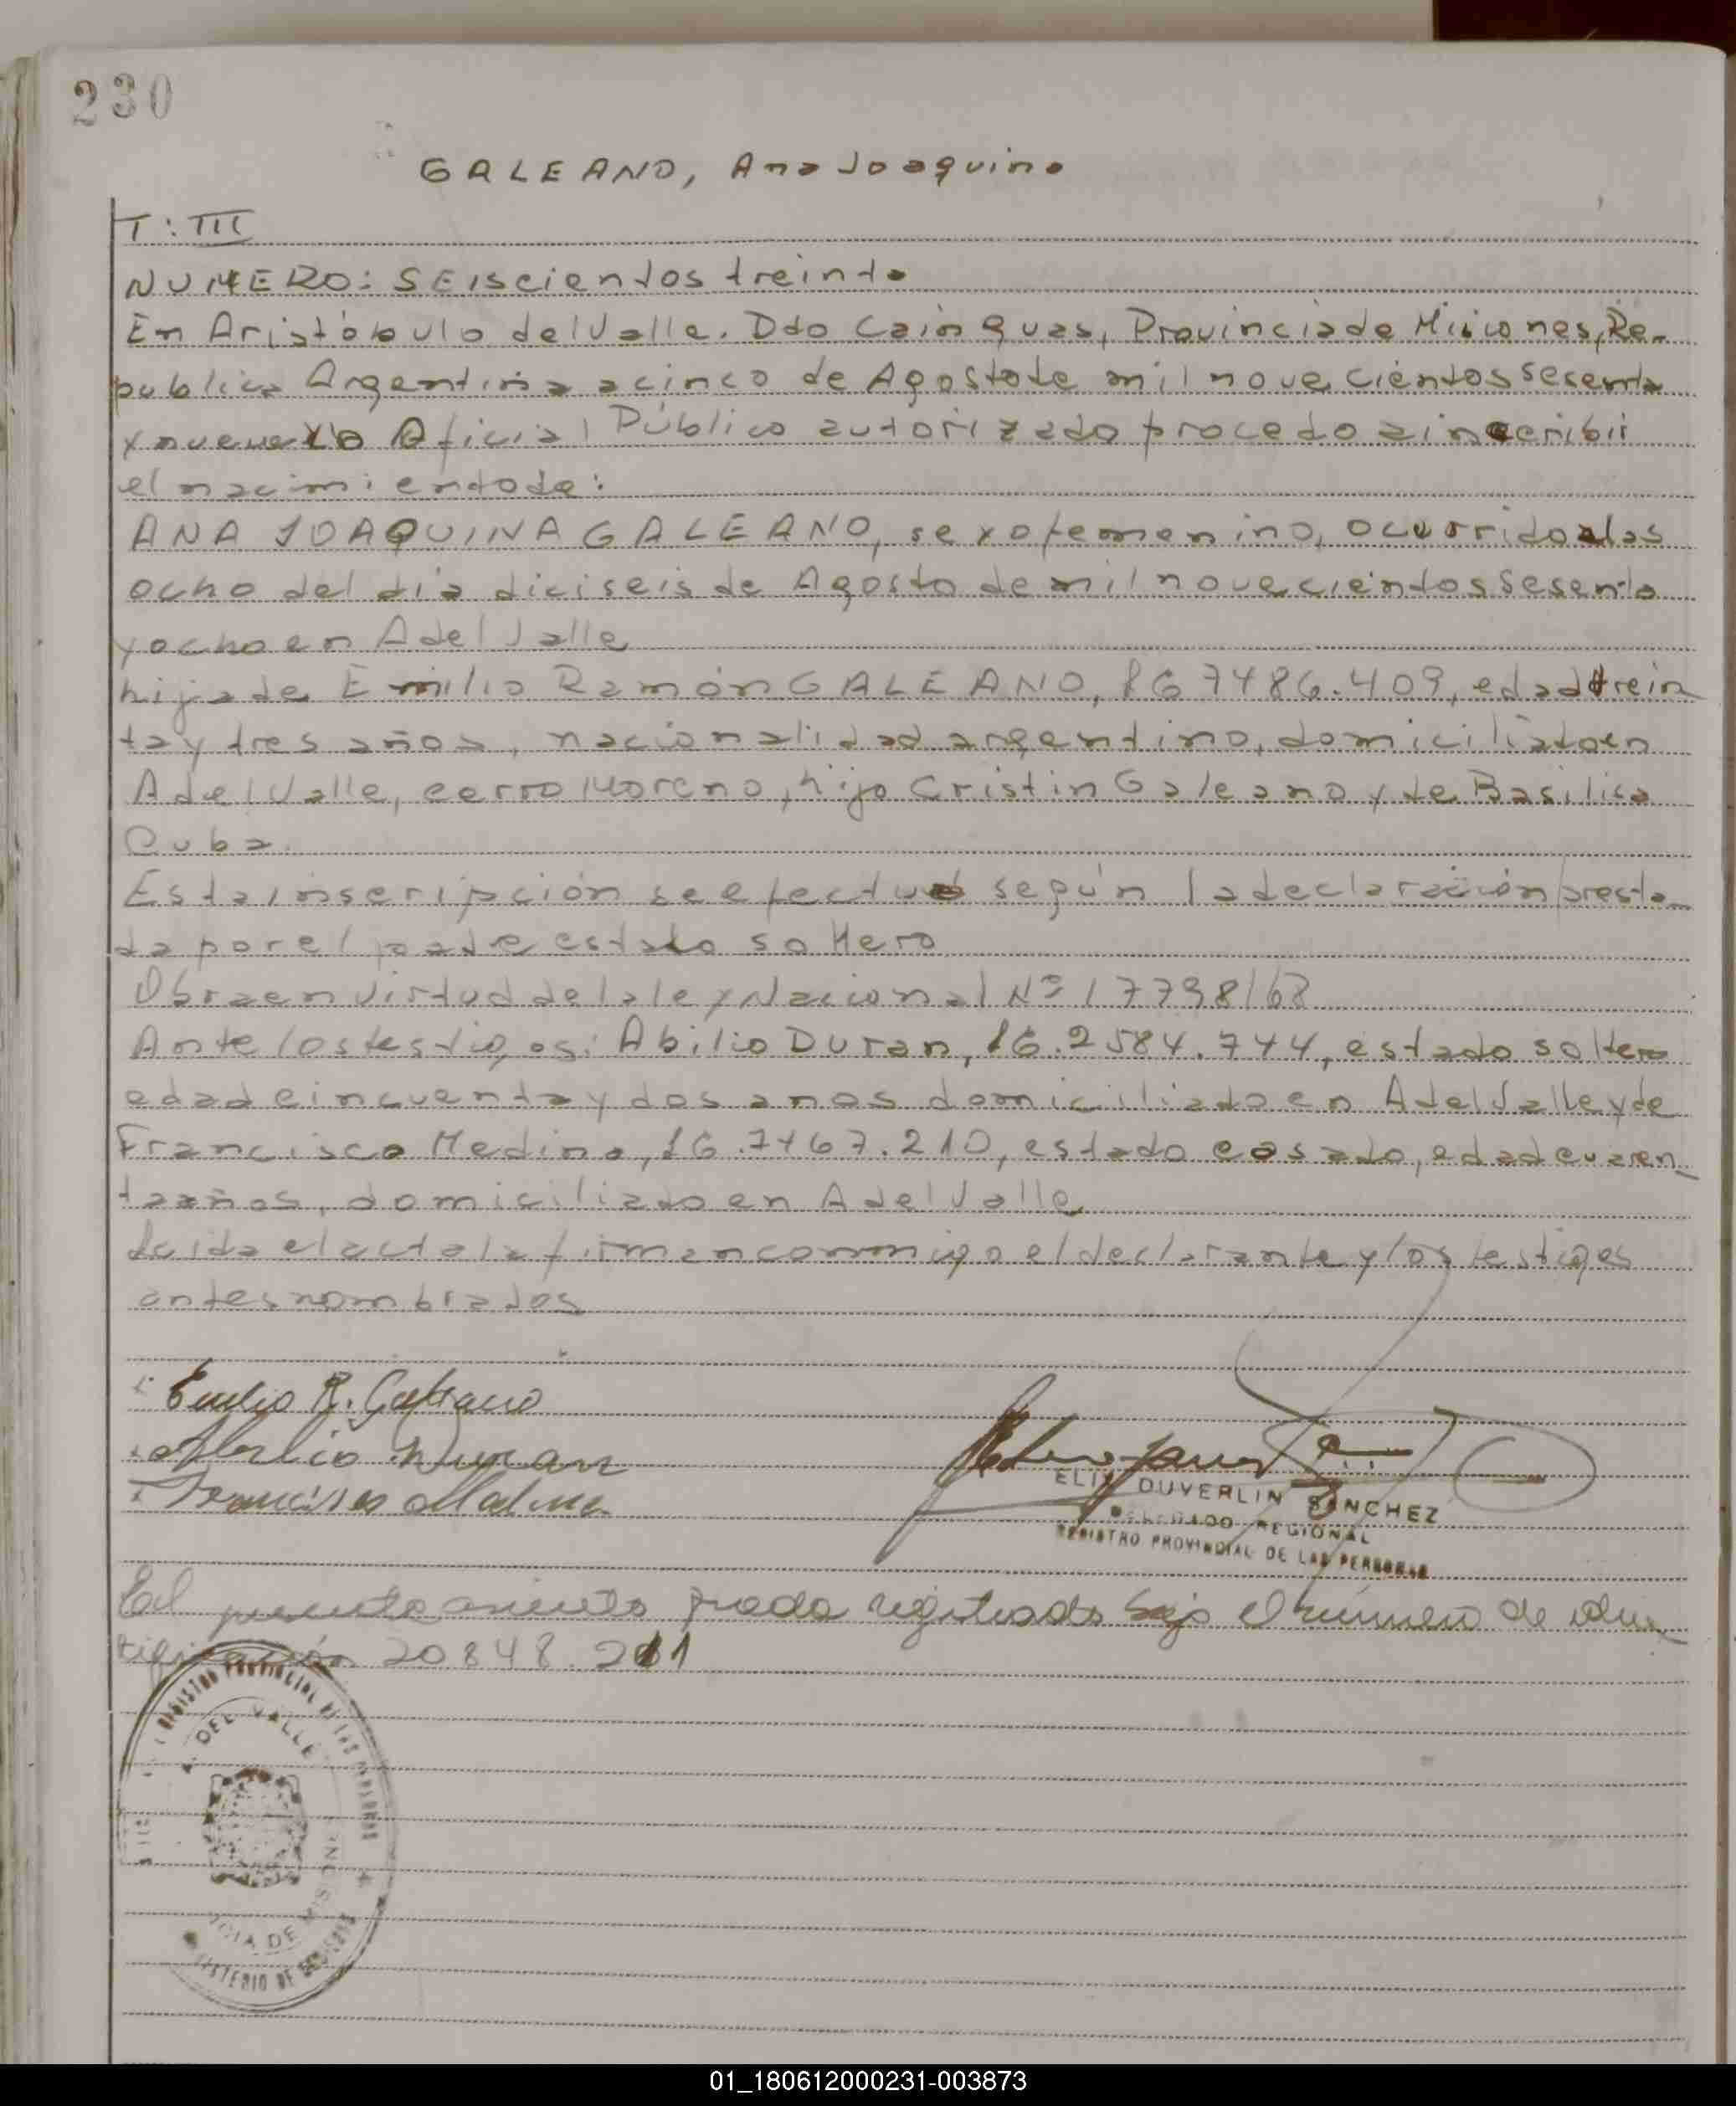 230
GALEANO, Ana Joaquina
T: III
NUMERO: SEIScientos treinta
En Aristóbulo del Valle. Dto Cainguas, Provincia de Misiones, Re-
publica Argentina a cinco de Agosto de mil nove cientos sesenta
y nueve Yo Oficial Público autorizado procedo a inscribir
el nacimiento de:
ANA JOAQUINA GALEANO, sexo femenino, ocurrido a las
ocho del día diciseis de Agosto de mil novecientos sesenta
y ocho en A del Valle
hija de Emilio Ramón GALEANO, LG 7486.409, edad trein
ta y tres años, nacionalidad argentino, domiciliado en
A del Valle, cerro Moreno, hijo Cristin Galeano y de Basilica
Cuba.
Esta inscripción se efectua según la declaración presta-
da por el padre estado soltero
Obra en virtud de la ley Nacional Nº 17798/68
Ante los testigos: Abilio Duran, LG.2584.744, estado soltero
edad cincuenta y dos anos domiciliado en A del Valle y de
Francisco Medina, LG.7467.210, estado casado, edad cuaren-
ta años, domiciliado en A del Valle
Leida el acta la firman conmigo el declarante y los testigos
antes nombrados
Emilio R. Galeano
Abilio Duran
Francisco Medina
ELIX DUVERLIN SANCHEZ
DELEGADO REGIONAL
REGISTRO PROVINCIAL DE LAS PERSONAS
El presente asiento queda registrado bajo el número de iden-
tificación 20848.211
REGISTRO PROVINCIAL DE LAS PERSONAS
A. DEL VALLE
MINISTERIO DE GOBIERNO
01_180612000231-003873